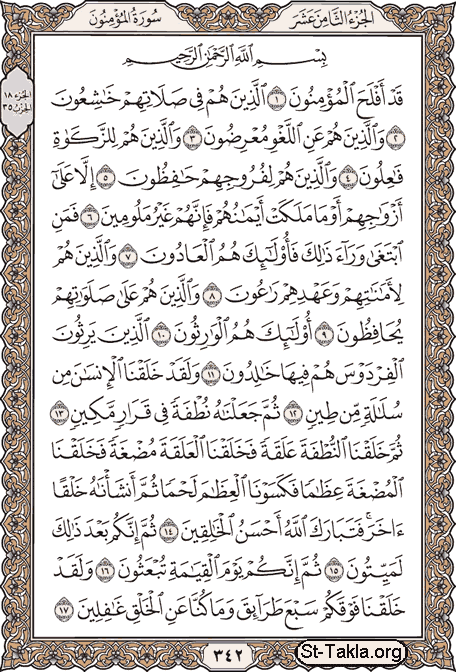 سُورَةُ المُؤْمِنُونَ
الجُزْءُ الثَّامِنَ عَشَرَ
الجزء ١٨
الحزب ٣٥
بِسْمِ اللَّهِ الرَّحْمَٰنِ الرَّحِيمِ
قَدْ أَفْلَحَ الْمُؤْمِنُونَ ١ الَّذِينَ هُمْ فِى صَلَاتِهِمْ خَاشِعُونَ
٢ وَالَّذِينَ هُمْ عَنِ اللَّغْوِ مُعْرِضُونَ ٣ وَالَّذِينَ هُمْ لِلزَّكَوٰةِ
فَاعِلُونَ ٤ وَالَّذِينَ هُمْ لِفُرُوجِهِمْ حَافِظُونَ ٥ إِلَّا عَلَىٰ
أَزْوَاجِهِمْ أَوْ مَا مَلَكَتْ أَيْمَانُهُمْ فَإِنَّهُمْ غَيْرُ مَلُومِينَ ٦ فَمَنِ
ابْتَغَىٰ وَرَاءَ ذَٰلِكَ فَأُولَٰئِكَ هُمُ الْعَادُونَ ٧ وَالَّذِينَ هُمْ
لِأَمَانَاتِهِمْ وَعَهْدِهِمْ رَاعُونَ ٨ وَالَّذِينَ هُمْ عَلَىٰ صَلَوَاتِهِمْ
يُحَافِظُونَ ٩ أُولَٰئِكَ هُمُ الْوَارِثُونَ ١٠ الَّذِينَ يَرِثُونَ
الْفِرْدَوْسَ هُمْ فِيهَا خَالِدُونَ ١١ وَلَقَدْ خَلَقْنَا الْإِنسَانَ مِن
سُلَالَةٍ مِّن طِينٍ ١٢ ثُمَّ جَعَلْنَاهُ نُطْفَةً فِى قَرَارٍ مَّكِينٍ ١٣
ثُمَّ خَلَقْنَا النُّطْفَةَ عَلَقَةً فَخَلَقْنَا الْعَلَقَةَ مُضْغَةً فَخَلَقْنَا
الْمُضْغَةَ عِظَامًا فَكَسَوْنَا الْعِظَامَ لَحْمًا ثُمَّ أَنشَأْنَاهُ خَلْقًا
ءَاخَرَ ۚ فَتَبَارَكَ اللَّهُ أَحْسَنُ الْخَالِقِينَ ١٤ ثُمَّ إِنَّكُم بَعْدَ ذَٰلِكَ
لَمَيِّتُونَ ١٥ ثُمَّ إِنَّكُمْ يَوْمَ الْقِيَامَةِ تُبْعَثُونَ ١٦ وَلَقَدْ
خَلَقْنَا فَوْقَكُمْ سَبْعَ طَرَائِقَ وَمَا كُنَّا عَنِ الْخَلْقِ غَافِلِينَ ١٧
٣٤٢
St-Takla.org